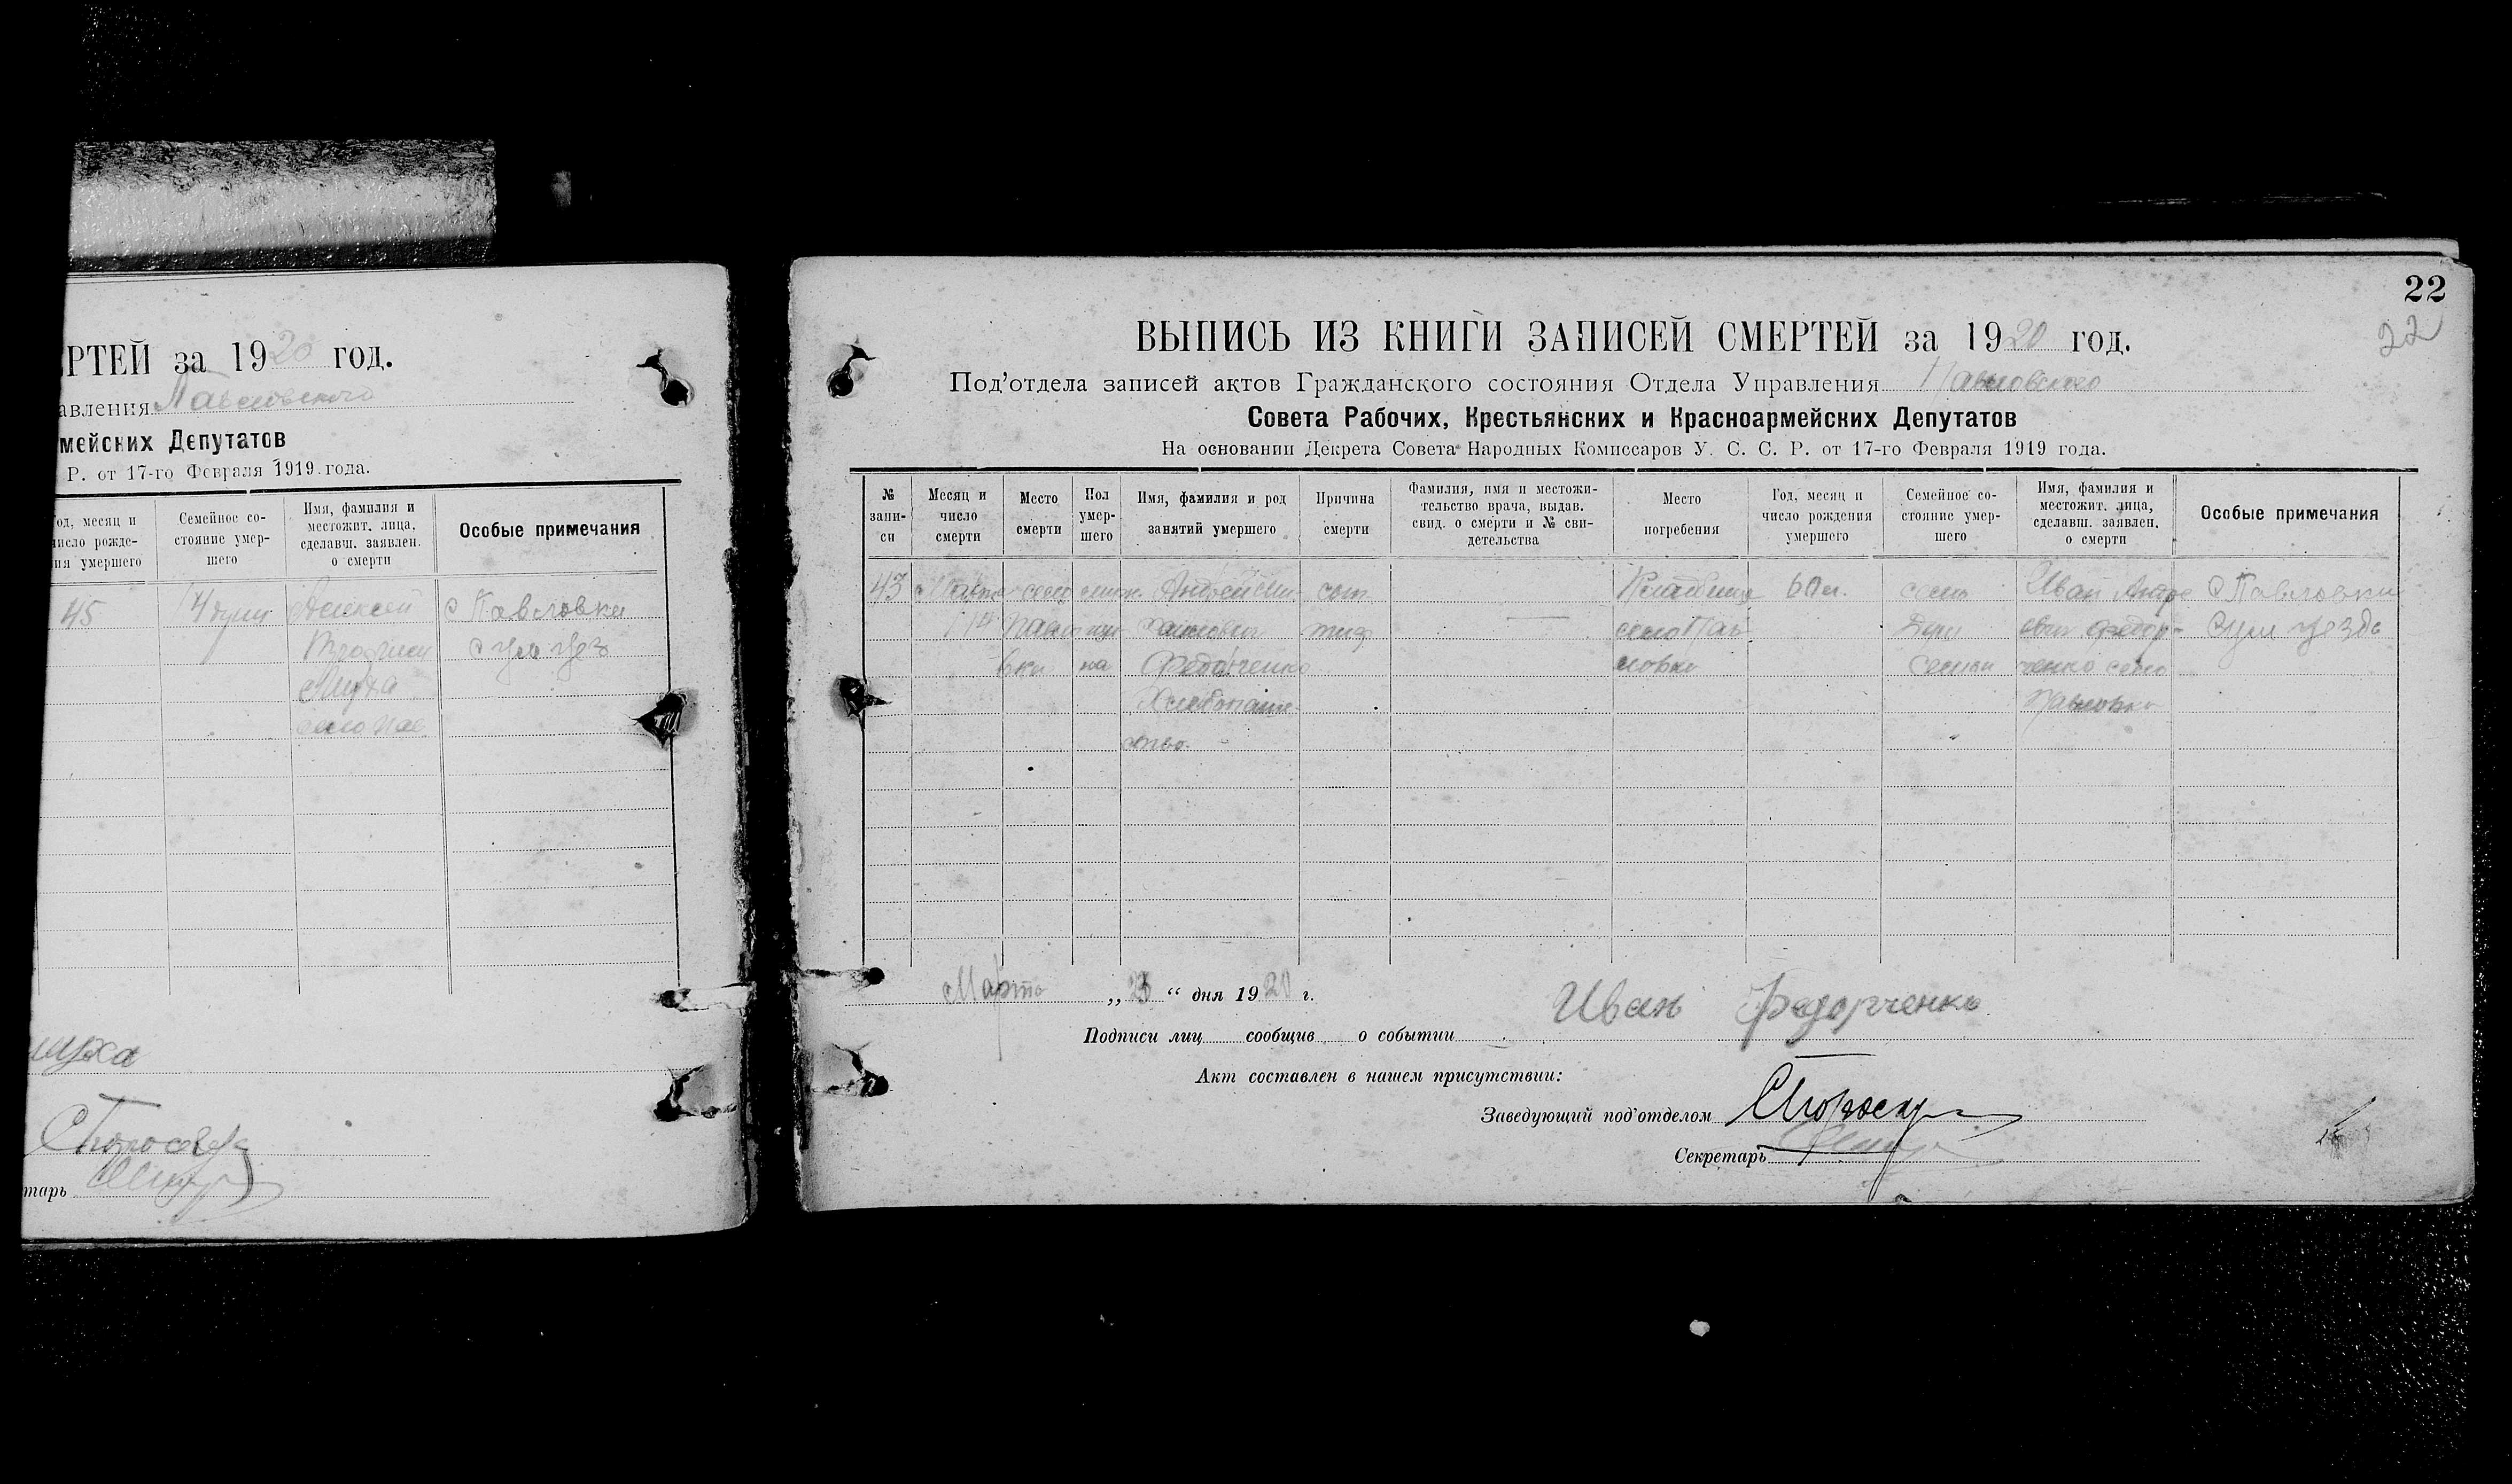 РТЕЙ за 1920 год.
авления Павловского
мейских Депутатов
Р. от 17-го Февраля 1919 года.
од, месяц и
число рожде-
ия умершего
Семейное со-
стояние умер-
шего
Имя, фамилия и
местожит. лица,
сделавш. заявлен.
о смерти
Особые примечания
45
Алексей
Муха
село Пав
с Павловки
муха
тарь
22
22
ВЫПИСЬ ИЗ КНИГИ ЗАПИСЕЙ СМЕРТЕЙ за 1920 год.
Под'отдела записей актов Гражданского состояния Отдела Управления Павловского
Совета Рабочих, Крестьянских и Красноармейских Депутатов
На основании Декрета Совета Народных Комиссаров У. С. С. Р. от 17-го Февраля 1919 года.
№
запи-
си
Месяц и
число
смерти
Место
смерти
Пол
умер-
шего
Имя, фамилия и род
занятий умершего
Причина
смерти
Фамилия, имя и местожи-
тельство врача, выдав.
свид. о смерти и № сви-
детельства
Место
погребения
Год, месяц и
число рождения
умершего
Семейное со-
стояние умер-
шего
Имя, фамилия и
местожит. лица,
сделавш. заявлен.
о смерти
Особые примечания
43
Марта
село
Павло
вки
мущи
на
Андрей Ми-
хайлович
Федорченко
Хлебопаше-
ство.
сып
тиф
Кладбище
село Пав-
ловка
60 л.
семь
душ
семьи
Иван Андре
евич Федор-
ченко село
Павловка
с Павловки
Сум уезда
Марта „23“ дня 1920 г.
Подписи лиц сообщив о событии Иван Федорченко
Акт составлен в нашем присутствии:
Заведующий под'отделом
Секретарь